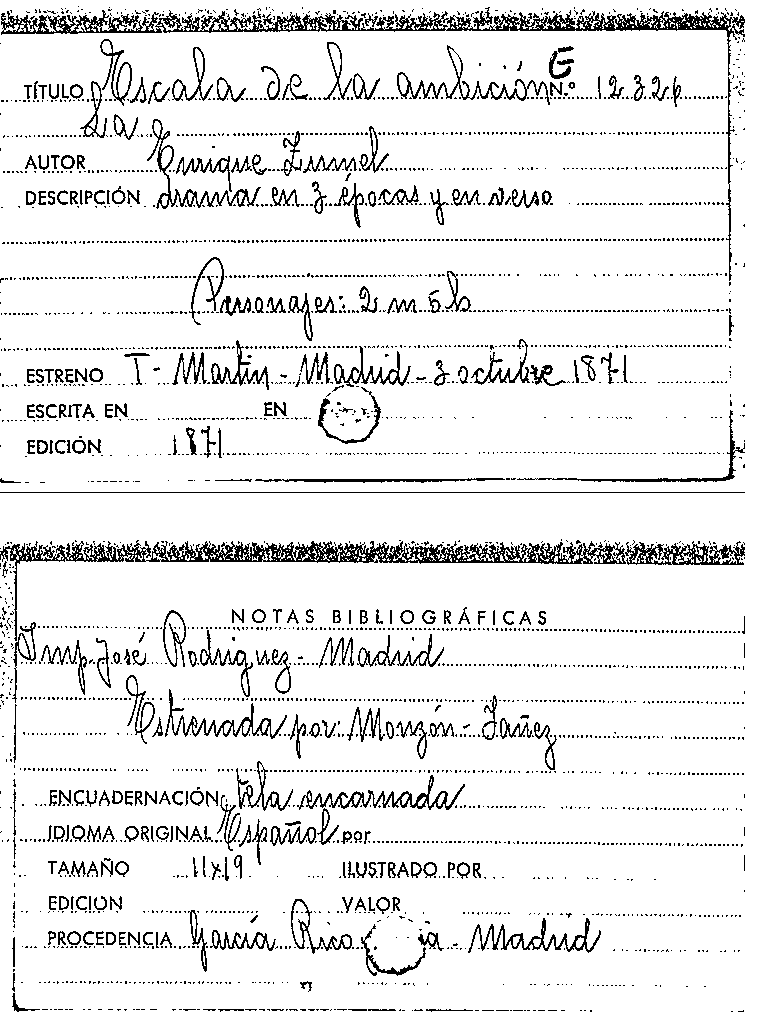 TÍTULO Escala de la ambición E N.º 12.326
La
AUTOR Enrique Zumel
DESCRIPCIÓN drama en 3 épocas y en verso
Personajes: 2 m 5 h
ESTRENO T- Martin - Madrid - 3 octubre 1871
ESCRITA EN EN
EDICIÓN 1871
NOTAS BIBLIOGRÁFICAS
Imp. José Rodriguez - Madrid
Estrenada por: Monzón - Jañez
ENCUADERNACIÓN tela encarnada
IDIOMA ORIGINAL Español por
TAMAÑO 11x19 ILUSTRADO POR
EDICIÓN VALOR
PROCEDENCIA García Rico - Madrid